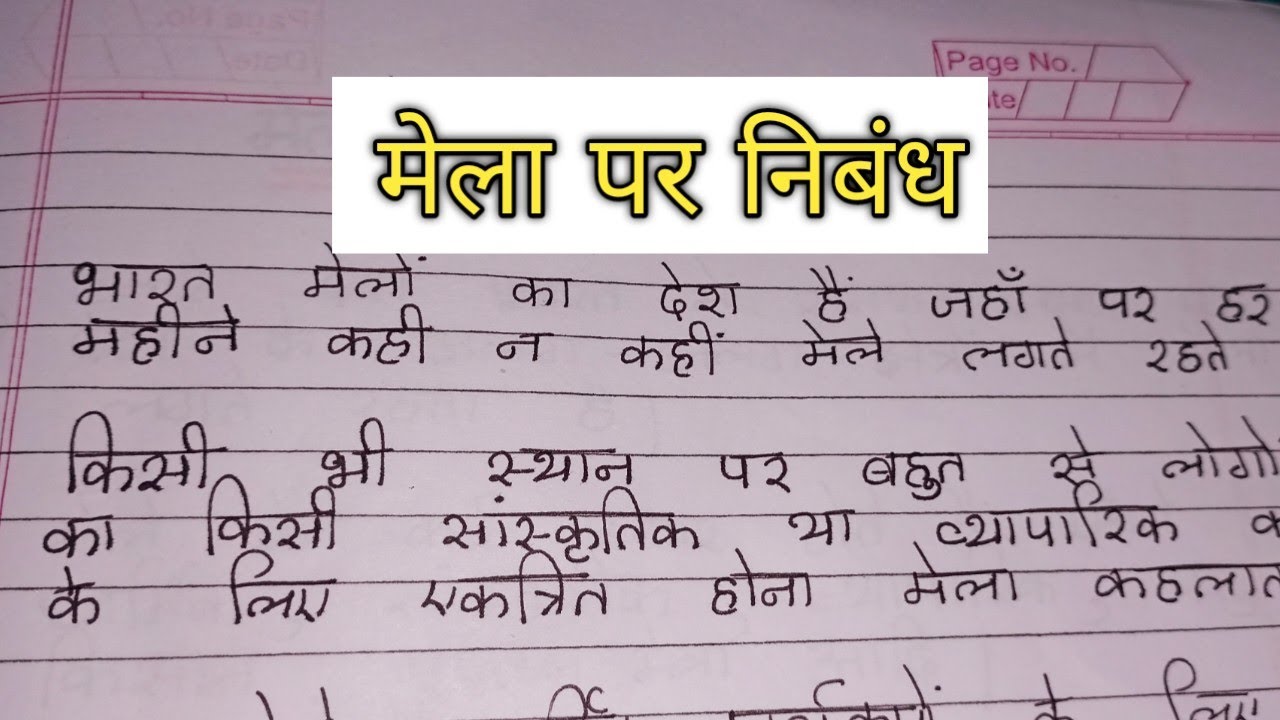 Page No.
मेला पर निबंध
भारत मेलों का देश हैं जहाँ पर हर
महीने कही न कहीं मेले लगते रहते
किसी भी स्थान पर बहुत से लोगो
का किसी सांस्कृतिक या व्यापारिक
के लिए एकत्रित होना मेला कहलात
के लिए